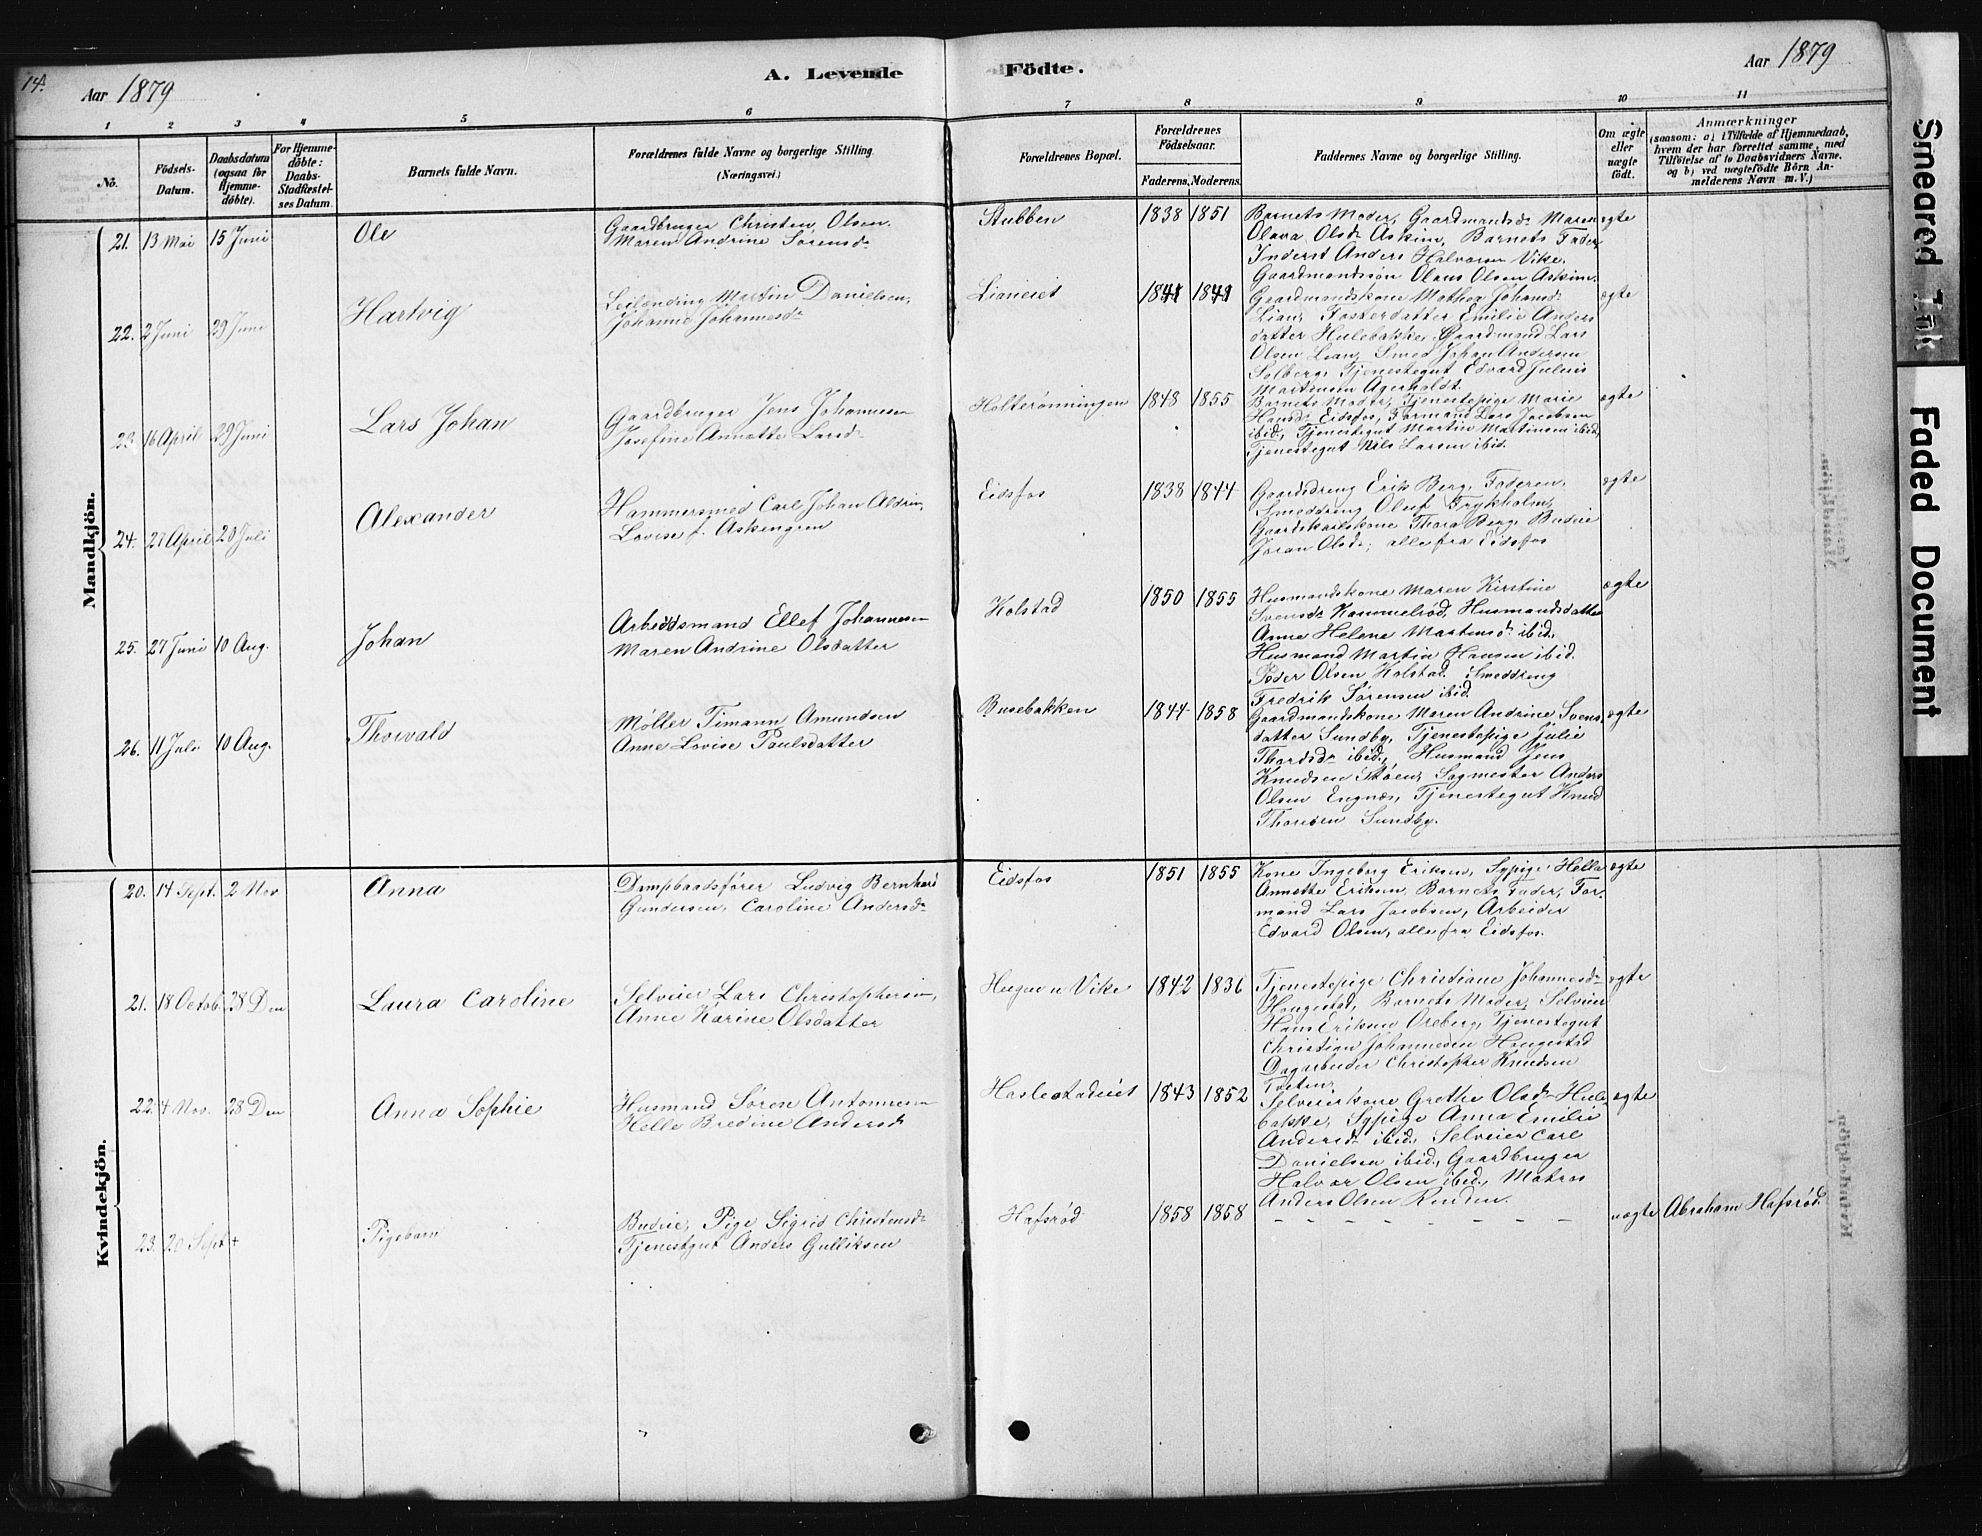 14.
Aar 1879
A. Levende
Födte.
Aar 1879
1 2 3 4 5 6 7 8 9 10 11
No.
Födsels-
Datum.
Daabsdatum
(ogsaa for
Hjemme-
döbte).
For Hjemme-
döbte:
Daabs-
Stadfæstel-
ses Datum.
Barnets fulde Navn.
Forældrenes fulde Navne og borgerlige Stilling
(Næringsvei.)
Forældrenes Bopæl.
Forældrenes
Födselsaar.
Faderens. Moderens.
Faddernes Navne og borgerlige Stilling.
Om ægte
eller
uægte
födt.
Anmærkninger
(saasom: a) i Tilfælde af Hjemmedaab,
hvem der har forrettet samme, med
Tilföielse af to Daabsvidners Navne,
og b) ved uægtefödte Börn An-
melderens Navn m. V.)
Mandkjön.
21. 13 Mai 15 Juni Ole
Gaardbruger Christen Olsen
Maren Andrine Sørensd.
Stubben 1838 1851
Barnets Moder, Gaardmandsd. Maren
Olava Olsd. Askim, Barnets Fader,
Inderst Anders Halvorsen Vike,
Gaardmandssøn Olaus Olsen Askim.
ægte
22. 2 Juni 29 Juni Hartvig
Leilænding Martin Danielsen,
Johanne Johannesd.
Lianeiet 1841 1849
Gaardmandskone Mathea Johansd.
Lian, Fosterdatter Emilie Anders
datter Hulebakke, Gaardmand Lars
Olsen Lian, Smed Johan Andersen
Solberg, Tjenestegut Edvard Julius
Martinsen Agerholdt.
ægte
23. 16 April 29 Juni Lars Johan
Gaardbruger Jens Johannesen
Josefine Annette Larsd.
Holterønningen 1848 1855
Barnets Moder, Tjenestepige Marie
Hansd. Eidsfos, Formand Lars Jacobsen
ibid, Tjenestegut Martin Martinsen ibid,
Tjenestegut Nils Larsen ibid.
ægte
24. 27 April 20 Juli Alexander
Hammersmed Carl Johan Aldrin,
Lovise f. Askengren
Eidsfos 1838 1844
Gaardsdreng Erik Berg, Faderen,
Smeddreng Oluf Frykholm,
Gaardskarlskone Thora Berg, Budeie
Joran Olsd., alle fra Eidsfos
ægte
25. 27 Juni 10 Aug. Johan
Arbeidsmand Ellef Johannesen
Maren Andrine Olsdatter
Holstad 1850 1855
Husmandskone Maren Kirstine
Svensd. Kammelrød, Husmandsdatter
Anne Helene Martinsd. ibid,
Husmand Martin Hansen ibid.
Peder Olsen Holstad, Smeddreng
Fredrik Sørensen ibid.
ægte
26. 11 Juli 10 Aug. Thorvald
Møller Timann Amundsen
Anne Lovise Paulsdatter
Busebakken 1844 1858
Gaardmandskone Maren Andrine Svens
datter Sundby, Tjenestepige Julie
Thordsd. ibid, Husmand Jens
Knudsen Støen, Sagmester Anders
Olsen Engnæs, Tjenestegut Knud
Thoresen Sundby.
ægte
Kvindekjön.
20. 14 Sept. 2 Nov Anna
Dampbaadsfører Ludvig Bernhard
Gundersen, Caroline Andersd.
Eidsfos 1851 1855
Kone Ingeborg Eriksen, Sypige Helle
Annette Eriksen, Barnets Fader, For-
mand Lars Jacobsen, Arbeider
Edvard Olsen, alle fra Eidsfos.
ægte
21. 18 Octob. 28 Den Laura Caroline
Selveier Lars Christophersen,
Anne Karine Olsdatter
Vike 1842 1836
Tjenestepige Christiane Johannesd.
Hougestad, Barnets Moder, Selveier
Hans Eriksen Oreberg, Tjenestegut
Christian Johannesen Hougestad
Dagarbeider Christopher Knudsen
Tveten.
ægte
22. 4 Nov. 28 Den Anna Sophie
Husmand Søren Antonnesen
Helle Bredine Andersd.
Haslestadeiet 1843 1852
Selveierkone Grethe Olsd. Hule
bakke, Sypige Anna Emilie
Andersd. ibid, Selveier Carl
Danielsen ibid, Gaardbruger
Halvor Olsen ibid, Matros
Anders Olsen Rinden.
ægte
23. 20 Sept + Pigebarn
Budeie, Pige Sigrid Christensd.
Tjenestgut Anders Gulliksen
Hafsrød 1858 1858
- - - - - - - -
uægte Abraham Hafsrød.
Smeared Ink
Faded Document